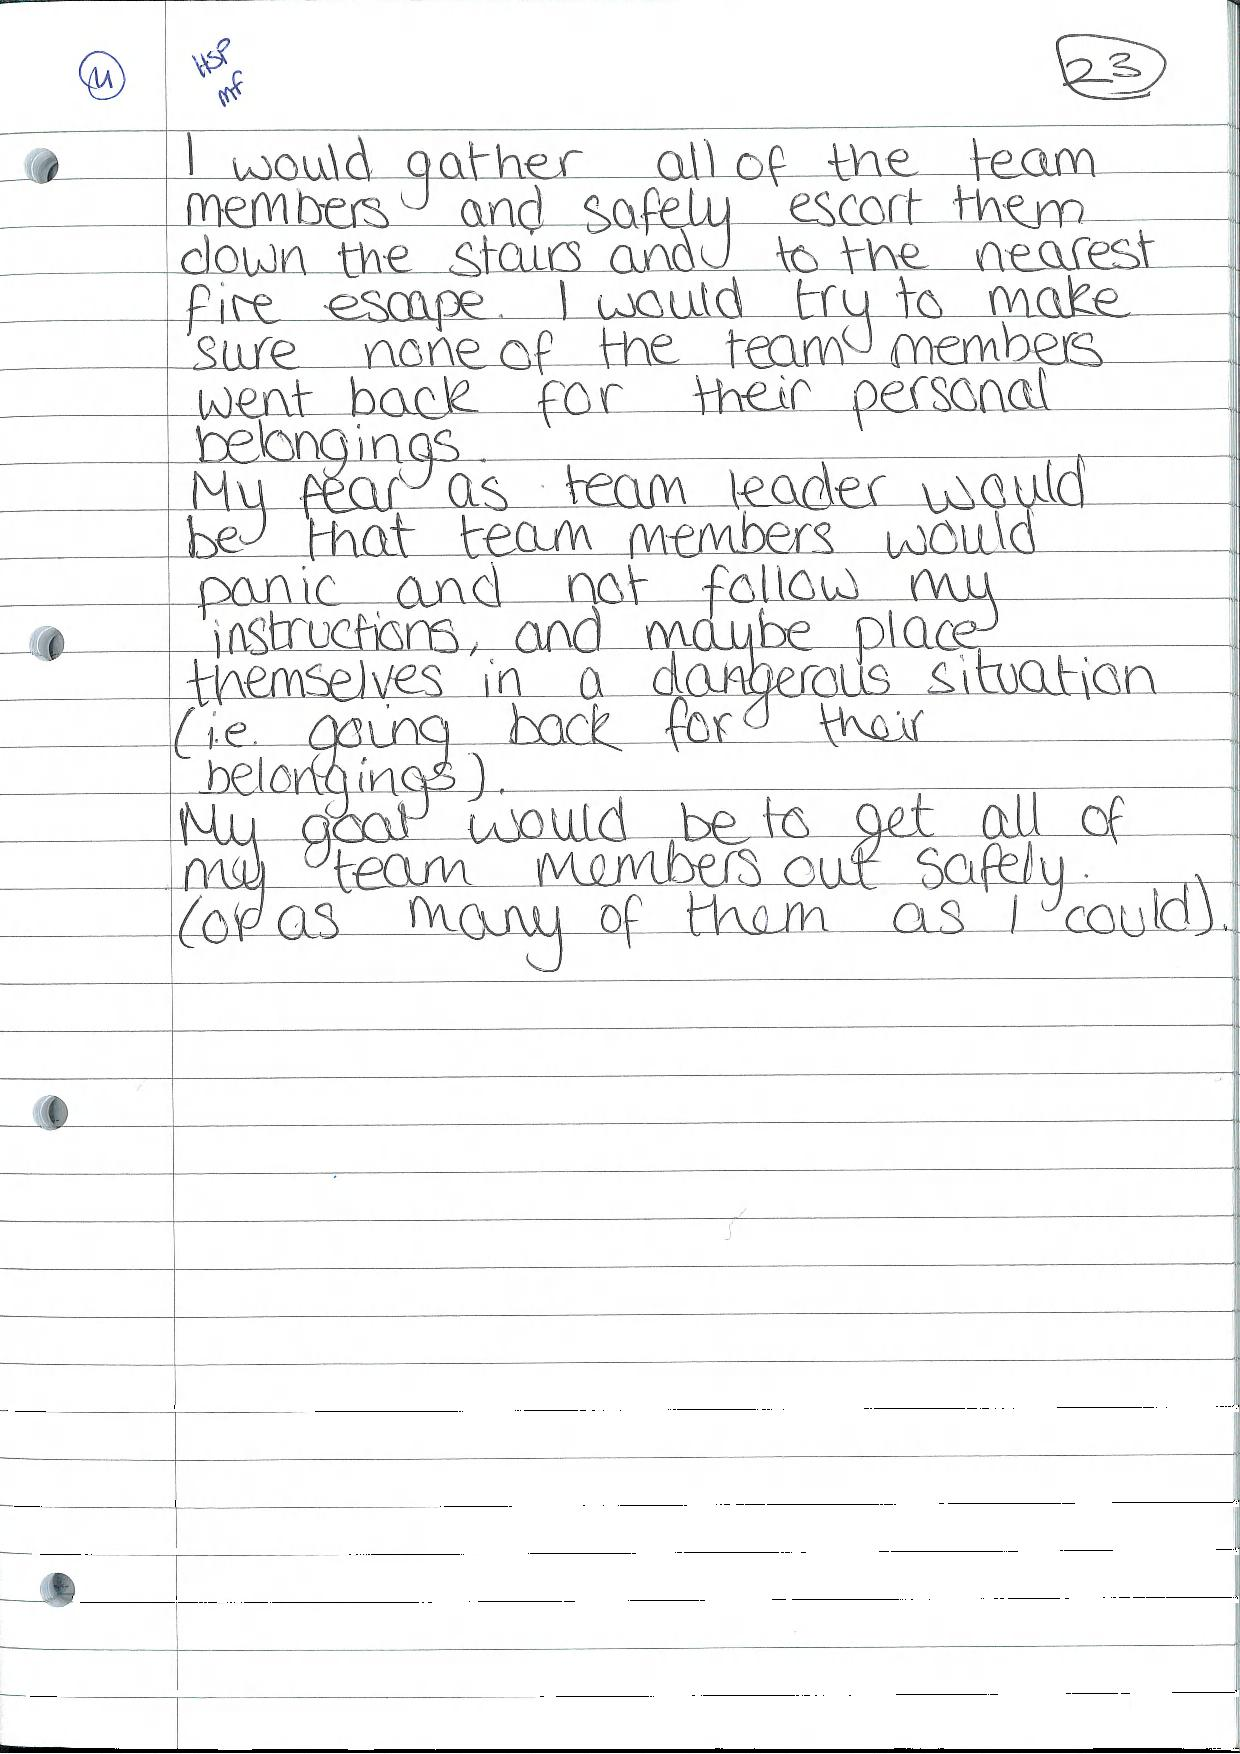 HSP
MF
23
I would gather all of the team
members and safely escort them
down the stairs and to the nearest
fire escape. I would try to make
sure none of the team members
went back for their personal
belongings.
My fear as team leader would
be that team members would
panic and not follow my
instructions, and maybe place
themselves in a dangerous situation
(i.e. going back for their
belongings).
My goal would be to get all of
my team members out safely.
(or as many of them as I could).